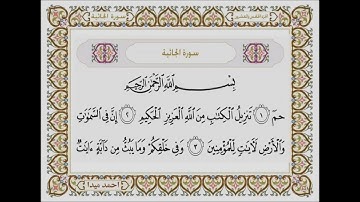 سورة الجاثية
سورة الجاثية
بِسْمِ ٱللَّهِ ٱلرَّحْمَٰنِ ٱلرَّحِيمِ
حمٓ ١ تَنزِيلُ ٱلْكِتَٰبِ مِنَ ٱللَّهِ ٱلْعَزِيزِ ٱلْحَكِيمِ ٢ إِنَّ فِى ٱلسَّمَٰوَٰتِ
وَٱلْأَرْضِ لَءَايَٰتٍ لِّلْمُؤْمِنِينَ ٣ وَفِى خَلْقِكُمْ وَمَا يَبُثُّ مِن دَآبَّةٍ ءَايَٰتٌ